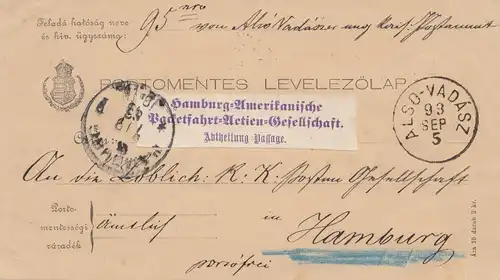 Feladó hatóság neve
és hiv. ügyszáma:
95 nro von Alsó Vadászer ung. königl. Postamt
PORTOMENTES LEVELEZŐLAP
Hamburg-Amerikanische
Packetfahrt-Actien-Gesellschaft.
Abtheilung Passage.
ALSO-VADÁSZ
93
SEP
5
An die Löblich: K. K. Posten Gesellschaft
Porto-
mentességi
záradék
Ämtlich
in
Hamburg
portófrei
Ára 10 darab 2 kr.